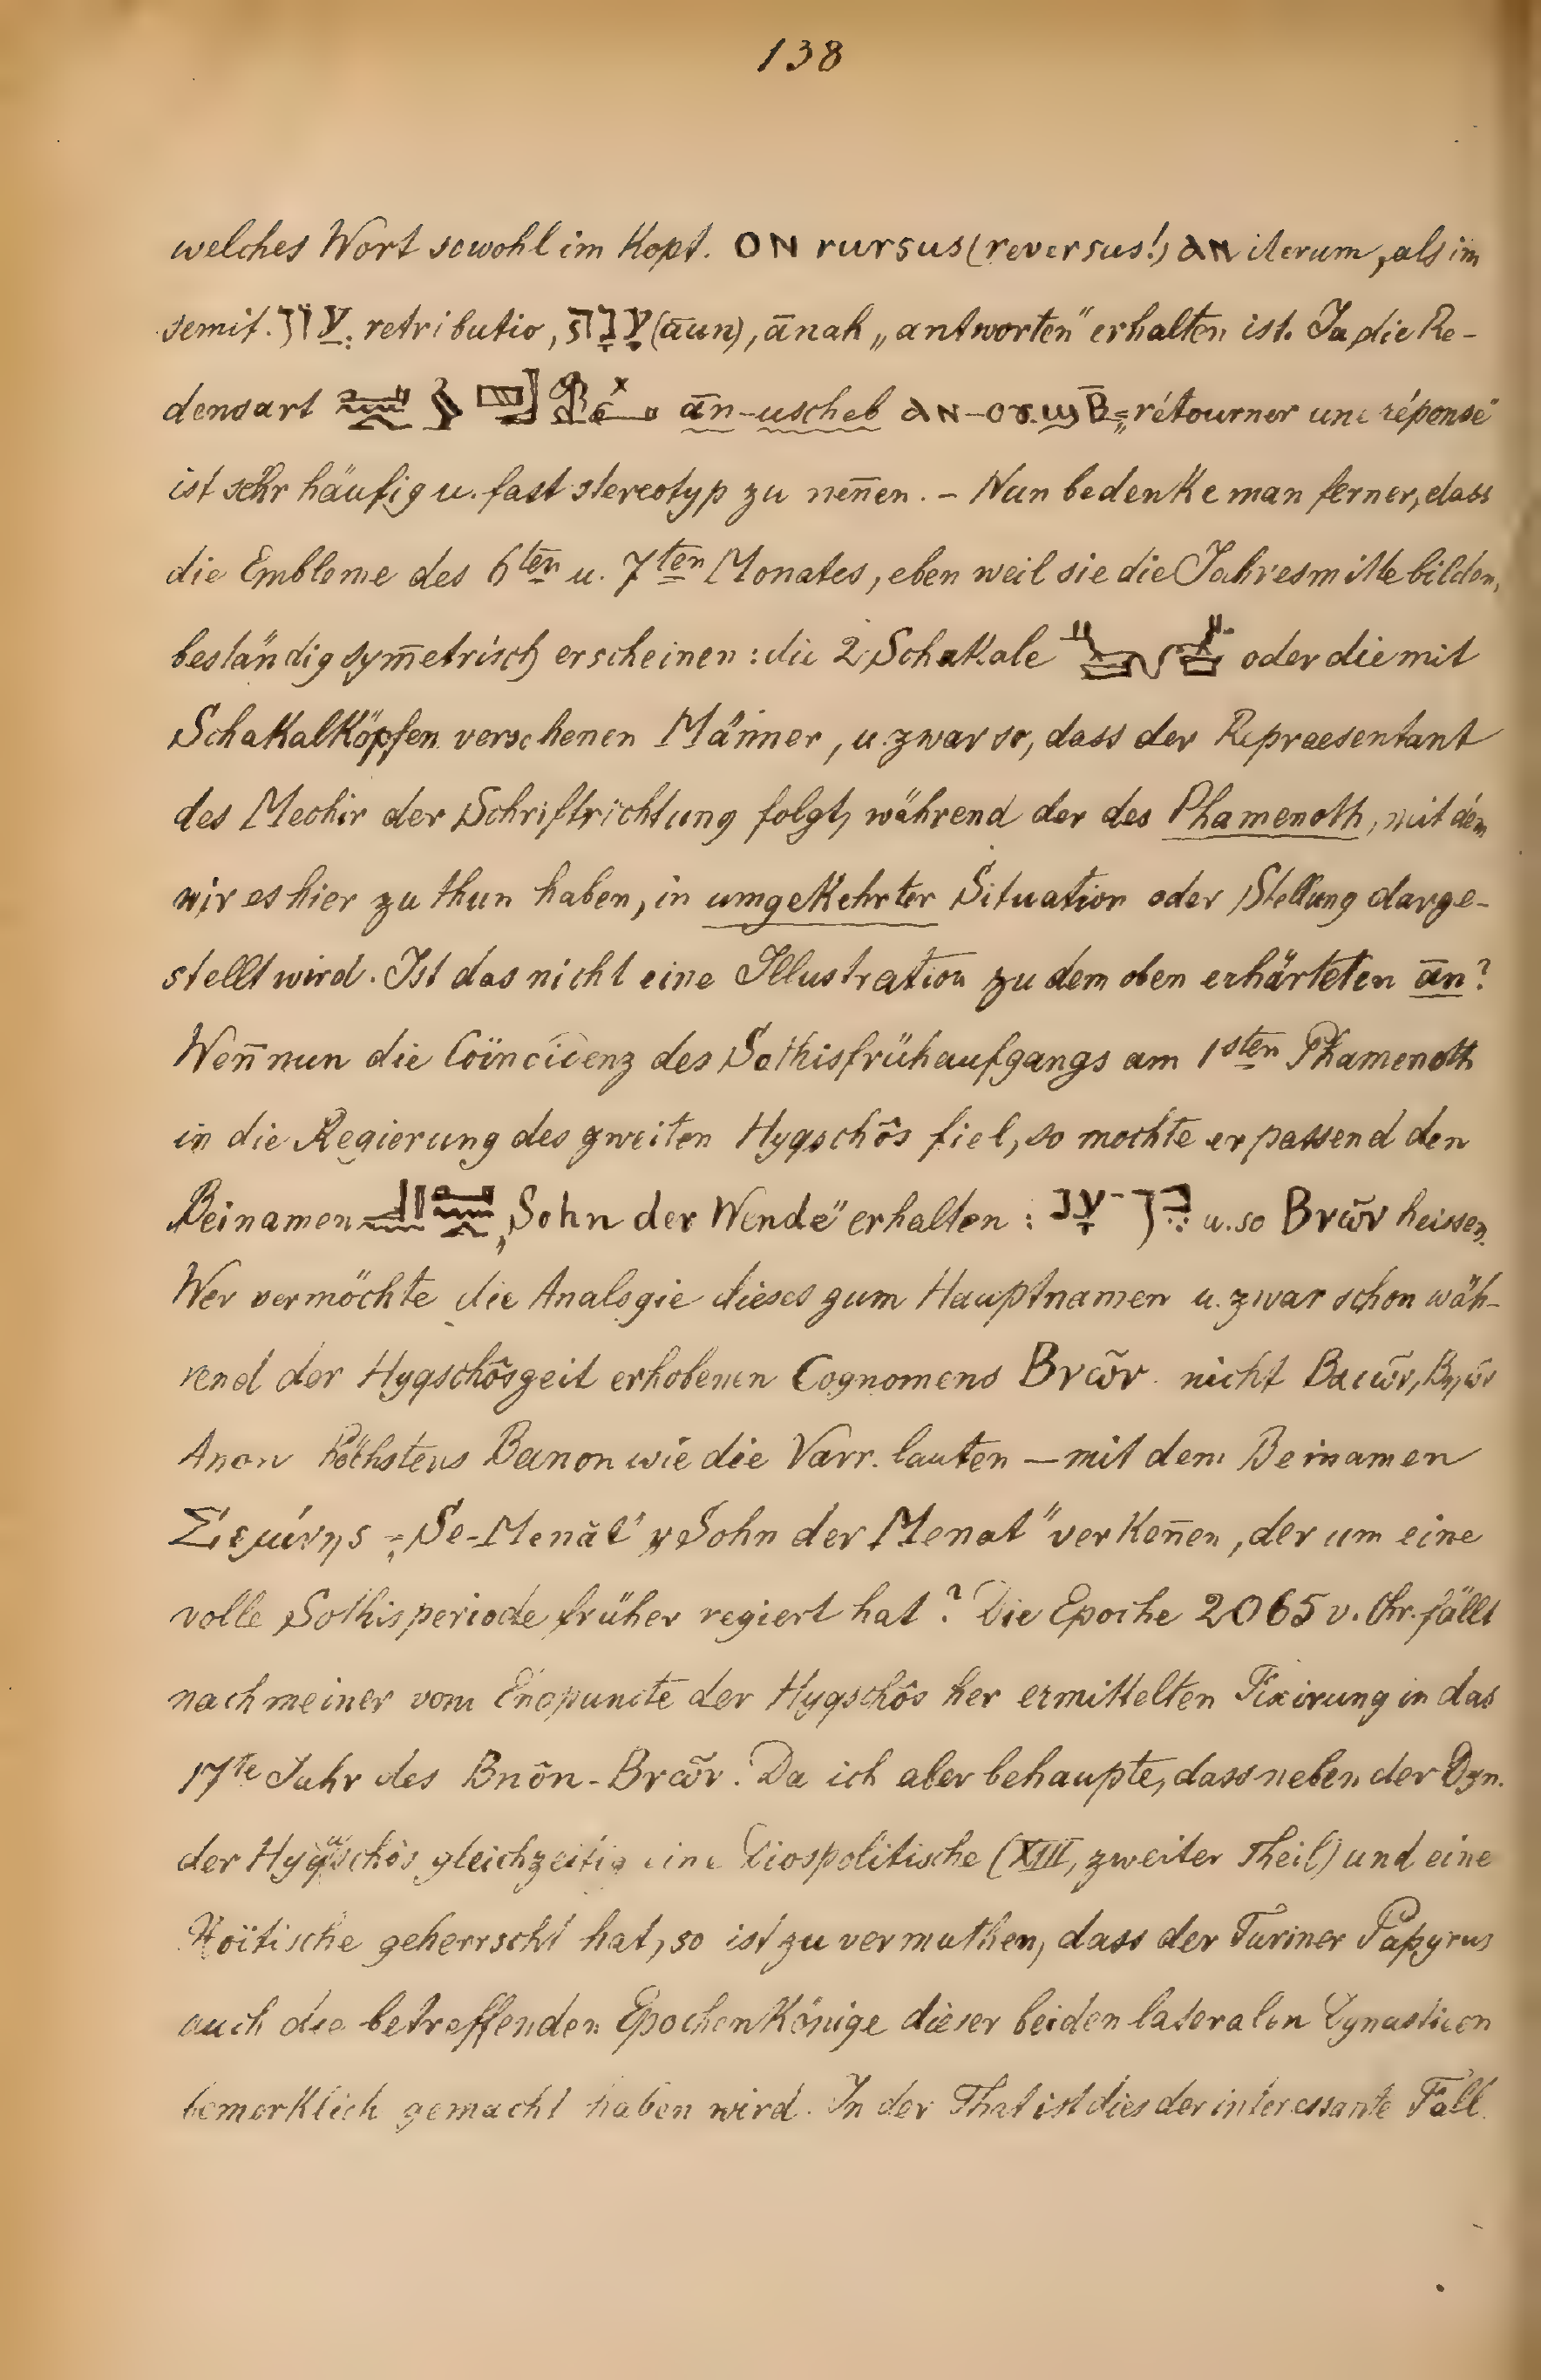 138
welches Wort sowohl im Kopt. ⲟⲛ rursus (reversus!) ⲁⲛ iterum, als im
semit. עון retributio, ענה (āun), ānah „antworten" erhalten ist. Ja die Re-
densart ān-uscheb ⲁⲛ-ⲟⲩⲱϣⲃ = „rétourner une réponse"
ist sehr häufig u. fast stereotyp zu nen̄en. – Nun bedenke man ferner, dass
die Embleme des 6ten u. 7ten Monates, eben weil sie die Jahresmitte bilden,
beständig sym̄etrisch erscheinen: die 2 Schakale oder die mit
Schakalköpfen versehenen Männer, u. zwar so, dass der Repraesentant
des Mechir der Schriftrichtung folgt, während der des Phamenoth, mit dem
wir es hier zu thun haben, in umgekehrter Situation oder Stellung darge-
stellt wird. Ist das nicht eine Illustration zu dem oben erhärteten ān?
Wen̄ nun die Coïncidenz des Sothisfrühaufgangs am 1sten Phamenoth
in die Regierung des zweiten Hyqschôs fiel, so mochte er passend den
Beinamen „Sohn der Wende" erhalten: u. so Βνῶν heissen.
Wer vermöchte die Analogie dieses zum Hauptnamen u. zwar schon wäh-
rend der Hyqschôszeit erhobenen Cognomens Βνῶν nicht Βαιῶν,
Anon höchstens Banon wie die Varr. lauten – mit dem Beinamen
Σεμένης = „Se-Menăt" „Sohn der Menat" verken̄en, der um eine
volle Sothisperiode früher regiert hat? Die Epoche 2065 v. Chr. fällt
nach meiner vom Endpuncte der Hyqschôs her ermittelten Fixirung in das
17te Jahr des Bnôn-Βνῶν. Da ich aber behaupte, dass neben der Dyn.
der Hyqschôs gleichzeitig eine Diospolitische (XIII, zweiter Theil) und eine
Xoïtische geherrscht hat, so ist zu vermuthen, dass der Turiner Papyrus
auch die betreffenden Epochenkönige dieser beiden lateralen Dynastieen
bemerklich gemacht haben wird. In der That ist dies der interessante Fall.